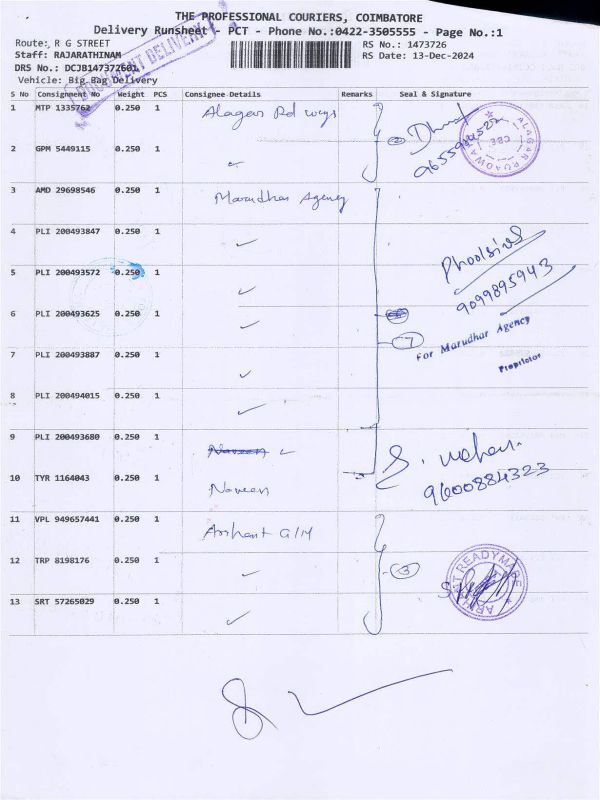 THE PROFESSIONAL COURIERS, COIMBATORE
Delivery Runsheet - PCT - Phone No.:0422-3505555 - Page No.:1
Route: R G STREET
RS No.: 1473726
Staff: RAJARATHINAM
RS Date: 13-Dec-2024
DRS No.: DCJB147372601
Vehicle: Big Bag Delivery
DOCUMENT DELIVERY
S No Consignment No Weight PCS Consignee Details Remarks Seal & Signature
1 MTP 1335762 0.250 1 Alagar Rd ways
2 GPM 5449115 0.250 1
9655944522
ALAGAR ROADWAYS
CBE
3 AMD 29698546 0.250 1 Marudhar Agency
4 PLI 200493847 0.250 1 ✓
5 PLI 200493572 0.250 1 ✓
9099895943
6 PLI 200493625 0.250 1 ✓
7
For Marudhar Agency
Propritor
7 PLI 200493887 0.250 1 ✓
8 PLI 200494015 0.250 1 ✓
9 PLI 200493680 0.250 1 Naveen ✓
S. Mohan.
10 TYR 1164043 0.250 1 Naveen
9600884323
11 VPL 949657441 0.250 1 Arihant G/M
12 TRP 8198176 0.250 1 ✓
3
READYMADE
13 SRT 57265029 0.250 1 ✓